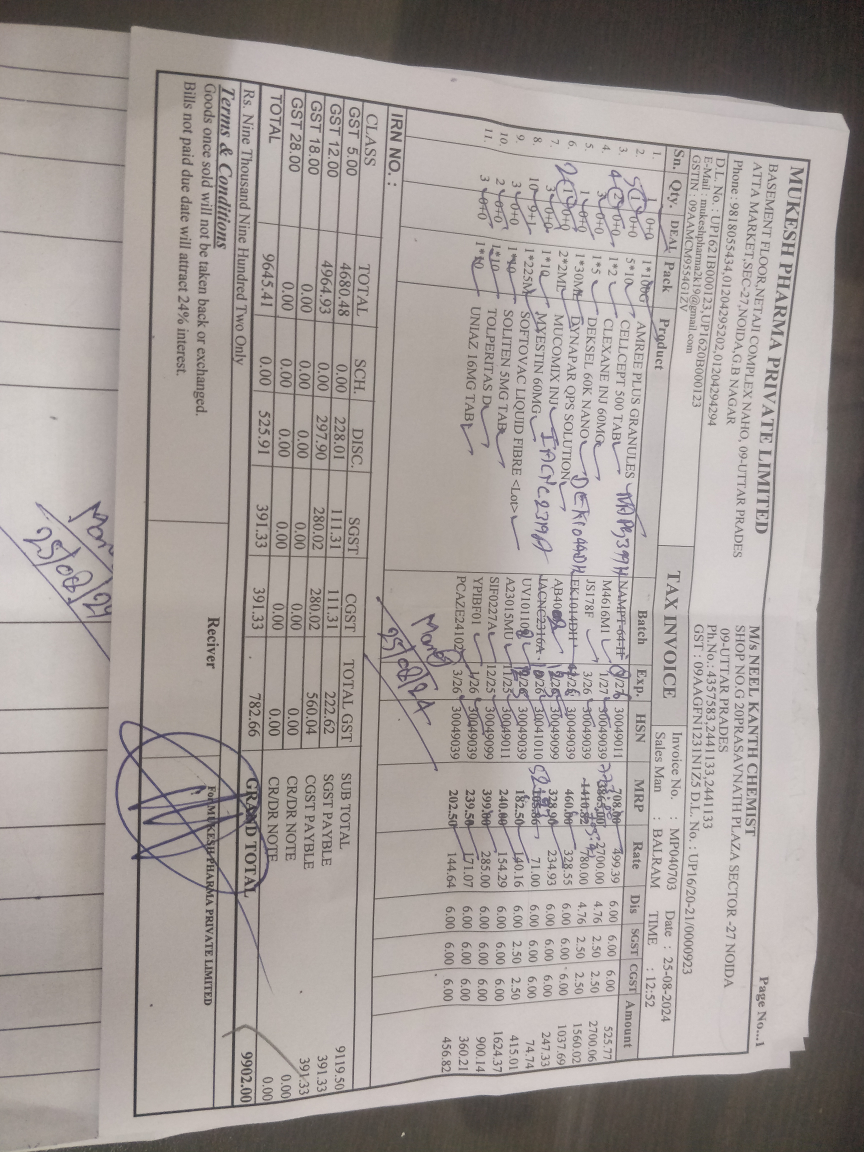 MUKESH PHARMA PRIVATE LIMITED
BASEMENT FLOOR,NETAJI COMPLEX NAHO, 09-UTTAR PRADES
ATTA MARKET,SEC-27,NOIDA,G.B NAGAR
Phone : 9818055434,01204295202,01204294294
D.L. No. : UP1621B000123,UP1620B000123
E-Mail : mukeshpharma2k19@gmail.com
GSTIN : 09AAMCM9554G1ZV
Page No...1
M/s NEEL KANTH CHEMIST
SHOP NO.G 20PRASAVNATH PLAZA SECTOR -27 NOIDA
09-UTTAR PRADES
Ph.No.: 4357583,2441133,2441133
GST : 09AAGFN1231N1Z5 D.L. No. : UP16/20-21/0000923
TAX INVOICE
Invoice No. : MP040703 Date : 25-08-2024
Sales Man : BALRAM TIME : 12:52
Sn. Qty. DEAL Pack Product Batch Exp. HSN MRP Rate Dis SGST CGST Amount
1. 0+0 1*100G AMREE PLUS GRANULES 30049011 708.00 499.39 6.00 6.00 6.00 525.77
2. 0+0 5*10 CELLCEPT 500 TAB M4616M1 1/27 30049039 2700.00 4.76 2.50 2.50 2700.06
3. 0+0 1*2 CLEXANE INJ 60MG JS178F 3/26 30049039 780.00 4.76 2.50 2.50 1560.02
4. 3 0+0 1*5 DEKSEL 60K NANO EK1014DH 30049039 460.00 328.55 6.00 6.00 6.00 1037.69
5. 1 0+0 1*30ML DYNAPAR QPS SOLUTION 30049099 328.90 234.93 6.00 6.00 6.00 247.33
6. 0+0 2*2ML MUCOMIX INJ IACNC2316A 30041010 71.00 6.00 6.00 6.00 74.74
7. 3 0+0 1*10 MYESTIN 60MG 30049099 182.50 140.16 6.00 2.50 2.50 415.01
8. 10 0+1 1*225M SOFTOVAC LIQUID FIBRE <Lot> A23015MU 30049011 240.00 154.29 6.00 6.00 6.00 1624.37
9. 3 0+0 1*10 SOLITEN 5MG TAB SIF0227A 12/25 30049099 399.00 285.00 6.00 6.00 6.00 900.14
10. 2 0+0 1*10 TOLPERITAS D YPIBF01 1/26 30049039 239.50 171.07 6.00 6.00 6.00 360.21
11. 3 0+0 1*10 UNIAZ 16MG TAB PCAZE24102 3/26 30049039 202.50 144.64 6.00 6.00 6.00 456.82
25/08/24
IRN NO. :
CLASS TOTAL SCH. DISC. SGST CGST TOTAL GST
GST 5.00 4680.48 0.00 228.01 111.31 111.31 222.62
GST 12.00 4964.93 0.00 297.90 280.02 280.02 560.04
GST 18.00 0.00 0.00 0.00 0.00 0.00 0.00
GST 28.00 0.00 0.00 0.00 0.00 0.00 0.00
TOTAL 9645.41 0.00 525.91 391.33 391.33 782.66
SUB TOTAL 9119.50
SGST PAYBLE 391.33
CGST PAYBLE 391.33
CR/DR NOTE 0.00
CR/DR NOTE 0.00
Rs. Nine Thousand Nine Hundred Two Only
GRAND TOTAL 9902.00
Terms & Conditions
Goods once sold will not be taken back or exchanged.
Bills not paid due date will attract 24% interest.
Reciver
For MUKESH PHARMA PRIVATE LIMITED
25/08/24